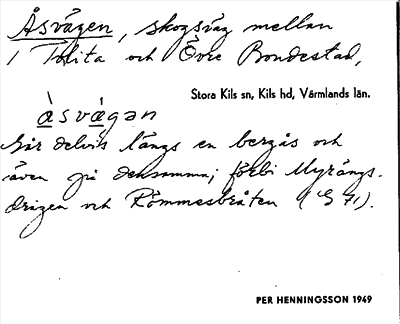 Åsvägen, skogsväg mellan
i Tolita och Övre Bondestad,
Stora Kils sn, Kils hd, Värmlands län.
åsvägən
Går delvis längs en bergås och
även på densamma; förbi Myrängs-
dragen och Römmesbråten (G 71).
PER HENNINGSSON 1949